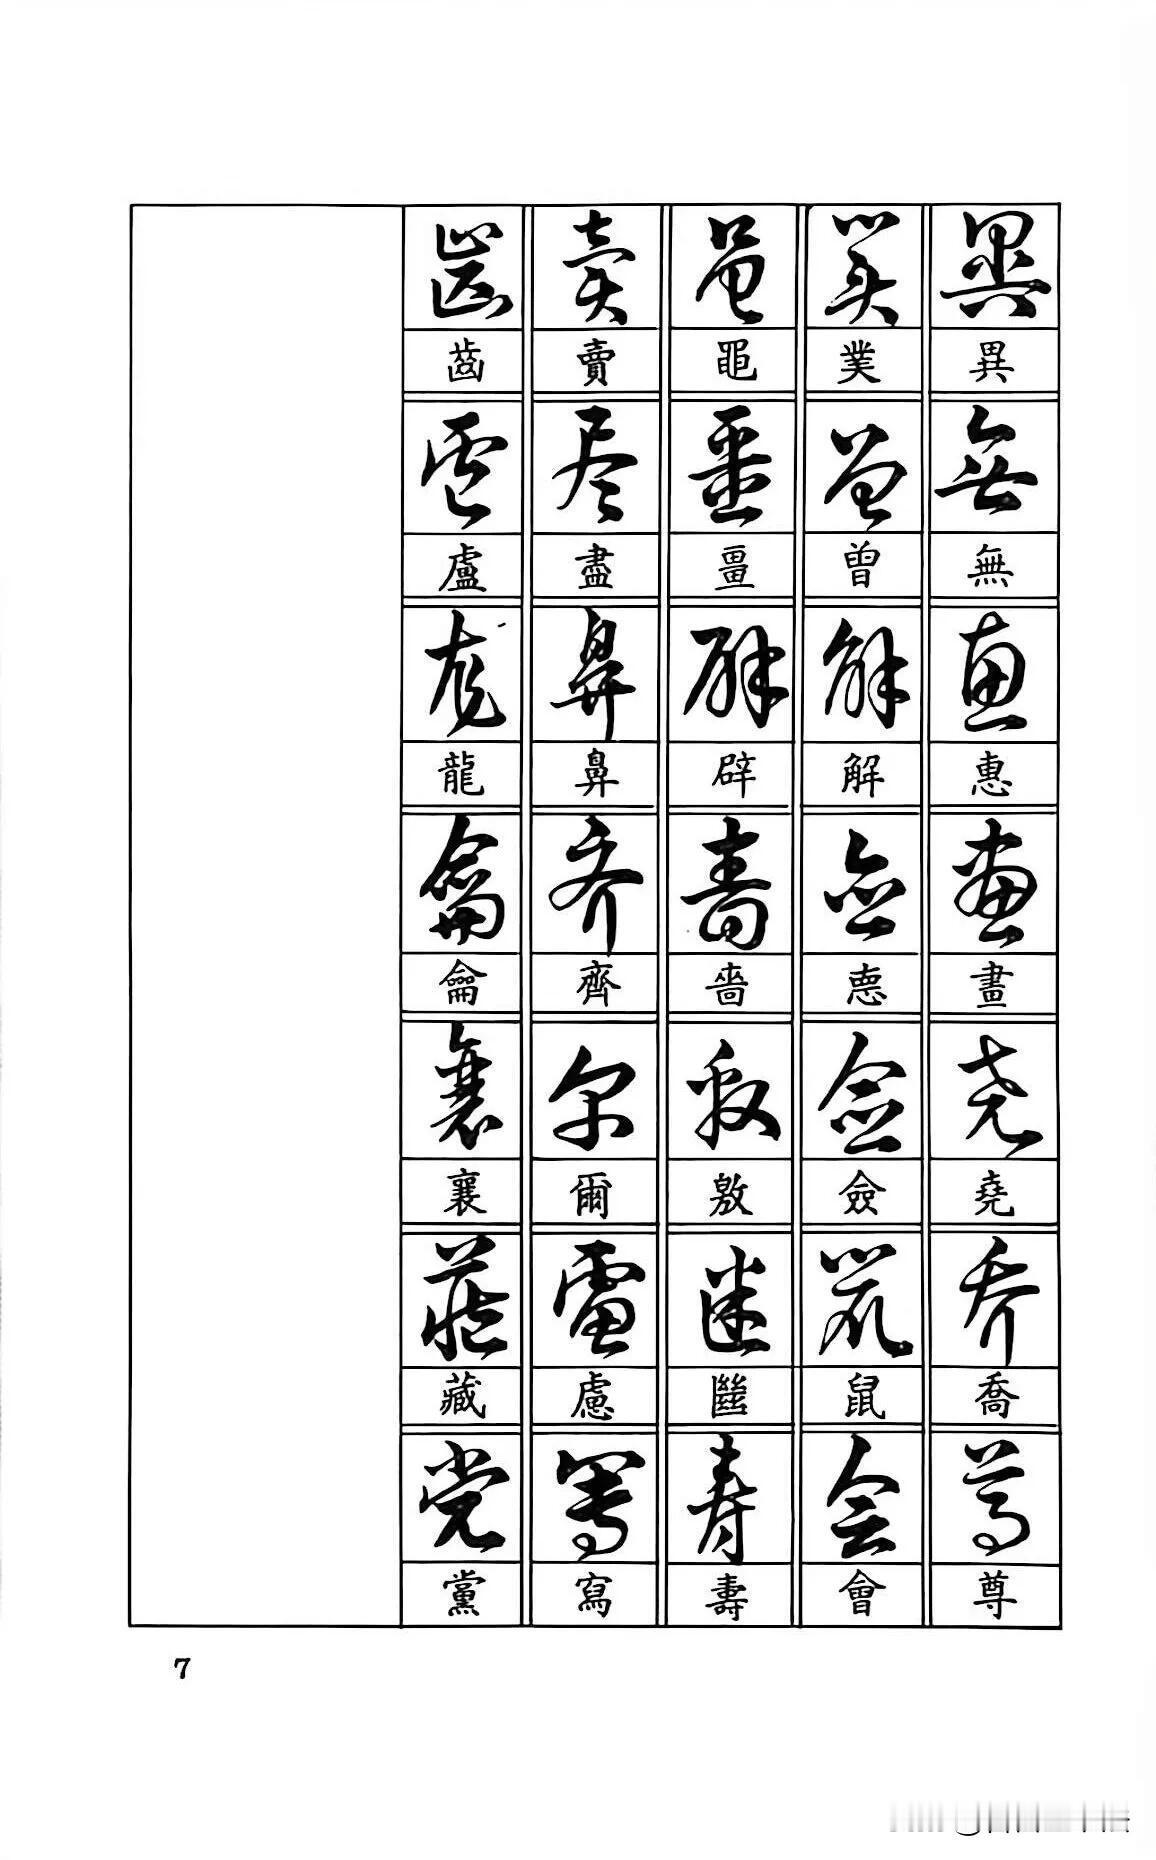 異
無
惠
畫
堯
喬
尊
業
曾
解
悳
僉
鼠
會
黽
畺
辟
嗇
敫
㡭
壽
賣
盡
鼻
齊
爾
慮
寫
齒
盧
龍
龠
襄
藏
黨
7